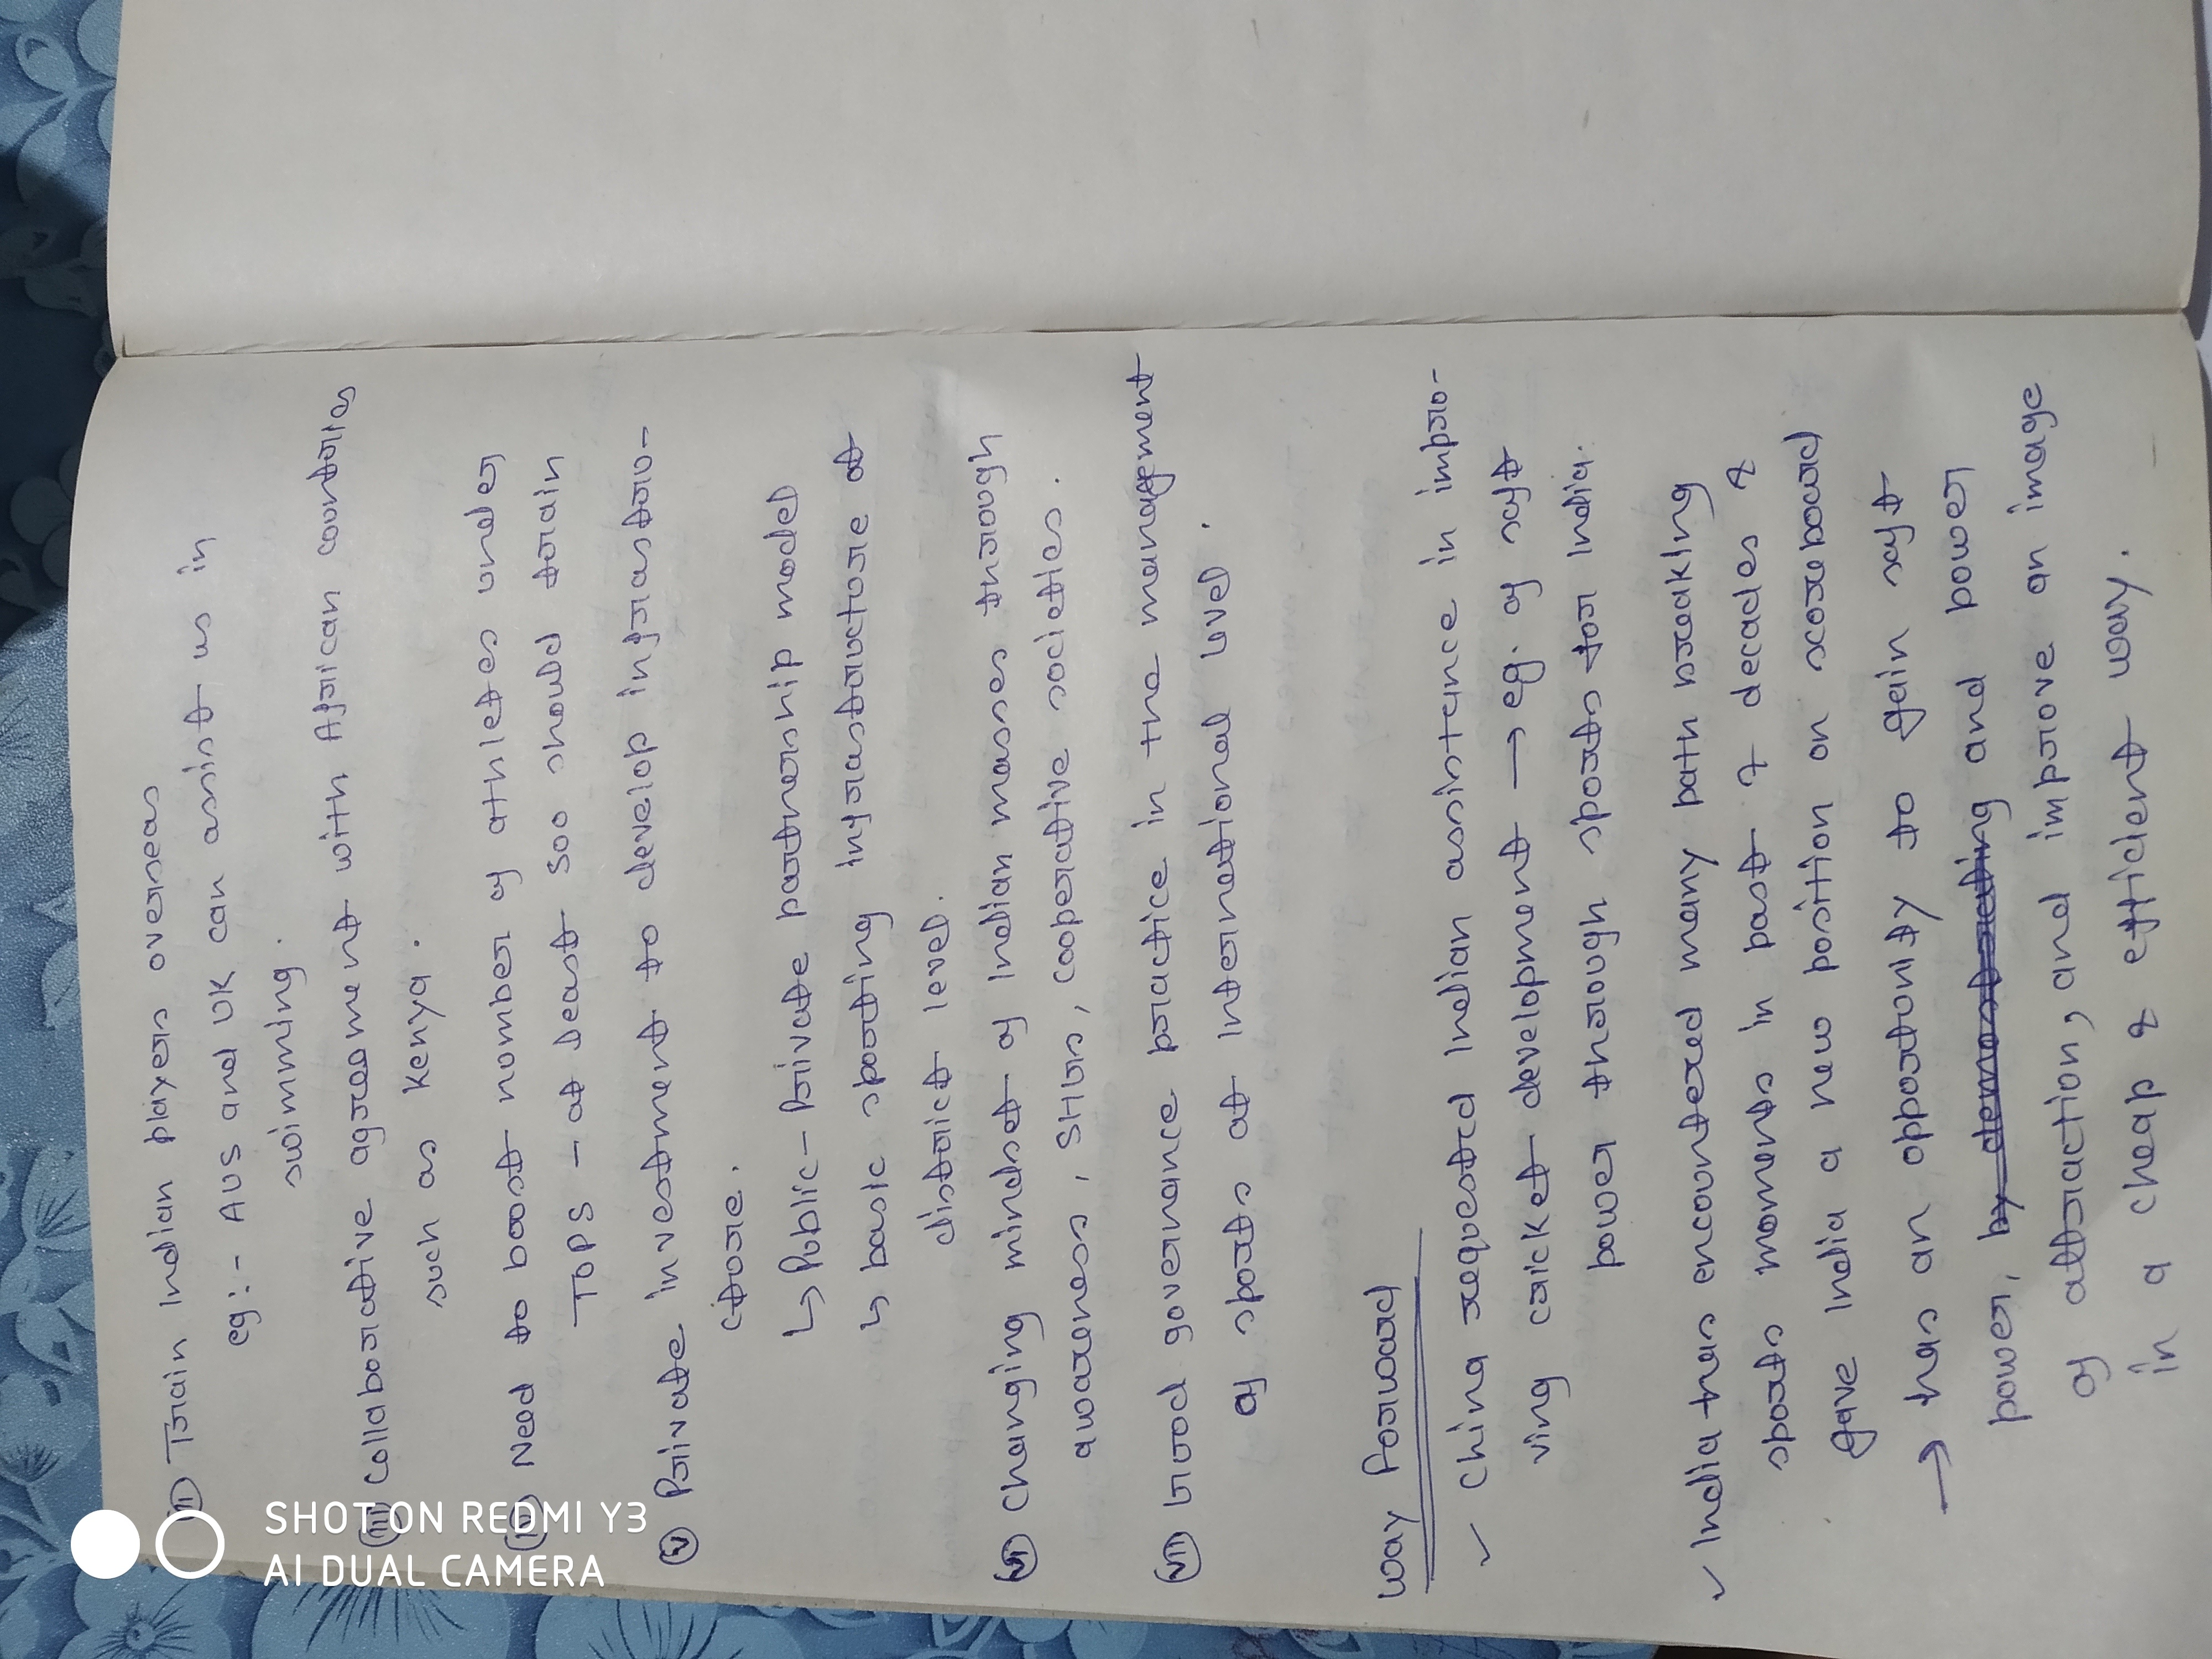 (ii) Train Indian players overseas
eg:- AUS and UK can assist us in
swimming.
(iii) Collaborative agreement with African countries
such as Kenya.
(iv) Need to boost number of athletes under
TOPS - at least 500 should train
(v) Private investment to develop infrastru-
cture.
↳ Public-Private partnership model
↳ basic sporting infrastructure at
district level.
(vi) Changing mindset of Indian masses through
awareness, SHGs, cooperative societies.
(vii) Good governance practice in the management
of sports at international level.
Way Forward
✓ China requested Indian assistance in impro-
ving cricket development → eg. of soft
power through sports for India.
✓ India has encountered many path breaking
sports moments in past 7 decades &
gave India a new position on scoreboard
→ has an opportunity to gain soft
power, by demostrating and power
of attraction, and improve an image
in a cheap & efficient way.
SHOT ON REDMI Y3
AI DUAL CAMERA